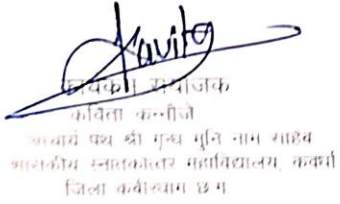 Kavita
कार्यक्रम संयोजक
कविता कन्नौजे
आचार्य पंथ श्री गृन्ध मुनि नाम साहेब
शासकीय स्नातकोत्तर महाविद्यालय, कवर्धा
जिला कबीरधाम छ.ग.